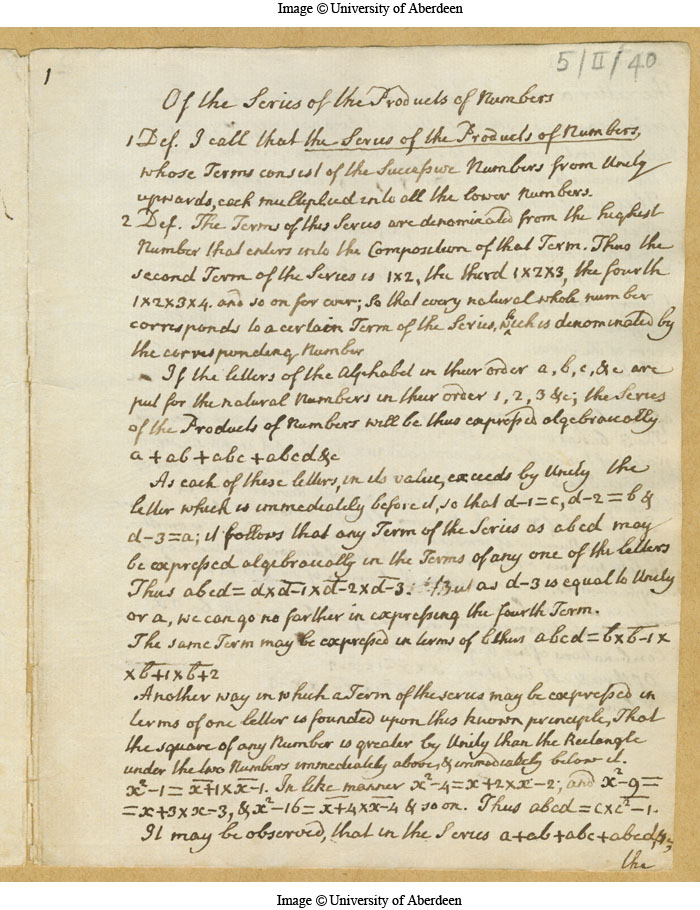 Image © University of Aberdeen
5/II/40
1
Of the Series of the Products of Numbers
1 Def. I call that the Series of the Products of Numbers,
whose Terms consist of the Successive Numbers from Unity
upwards, each multiplied into all the lower Numbers.
2 Def. The Terms of this Series are denominated from the highest
Number that enters into the Composition of that Term. Thus the
second Term of the Series is 1x2, the third 1x2x3, the fourth
1x2x3x4. and so on for ever; So that every natural whole number
corresponds to a certain Term of the Series, which is denominated by
the corresponding Number
If the letters of the Alphabet in their order a, b, c, &c are
put for the natural Numbers in their order 1, 2, 3 &c; the Series
of the Products of Numbers will be thus expressed algebraically
a + ab + abc + abcd &c
As each of these letters, in its value, exceeds by Unity the
letter which is immediately before it, so that d-1=c, d-2=b &
d-3=a; it follows that any Term of the Series as abcd may
be expressed algebraically in the Terms of any one of the letters
Thus abcd = d x d̅-̅1̅ x d̅-̅2̅ x d̅-̅3̅. But as d-3 is equal to Unity
or a, we can go no farther in expressing the fourth Term.
The same Term may be expressed in terms of b thus abcd = b x b̅-̅1̅ x
x b̅+̅1̅ x b̅+̅2̅
Another way in which a Term of the series may be expressed in
terms of one letter is founded upon this known principle, That
the square of any Number is greater by Unity than the Rectangle
under the two Numbers immediately above, & immediately below it.
x²-1 = x̅+̅1̅ x x̅-̅1̅. In like manner x²-4 = x̅+̅2̅ x x̅-̅2̅, and x²-9 =
= x̅+̅3̅ x x̅-̅3̅, & x²-16 = x̅+̅4̅ x x̅-̅4̅ & so on. Thus abcd = c x c̅²̅-̅1̅.
It may be observed, that in the Series a + ab + abc + abcd &c,
the
Image © University of Aberdeen